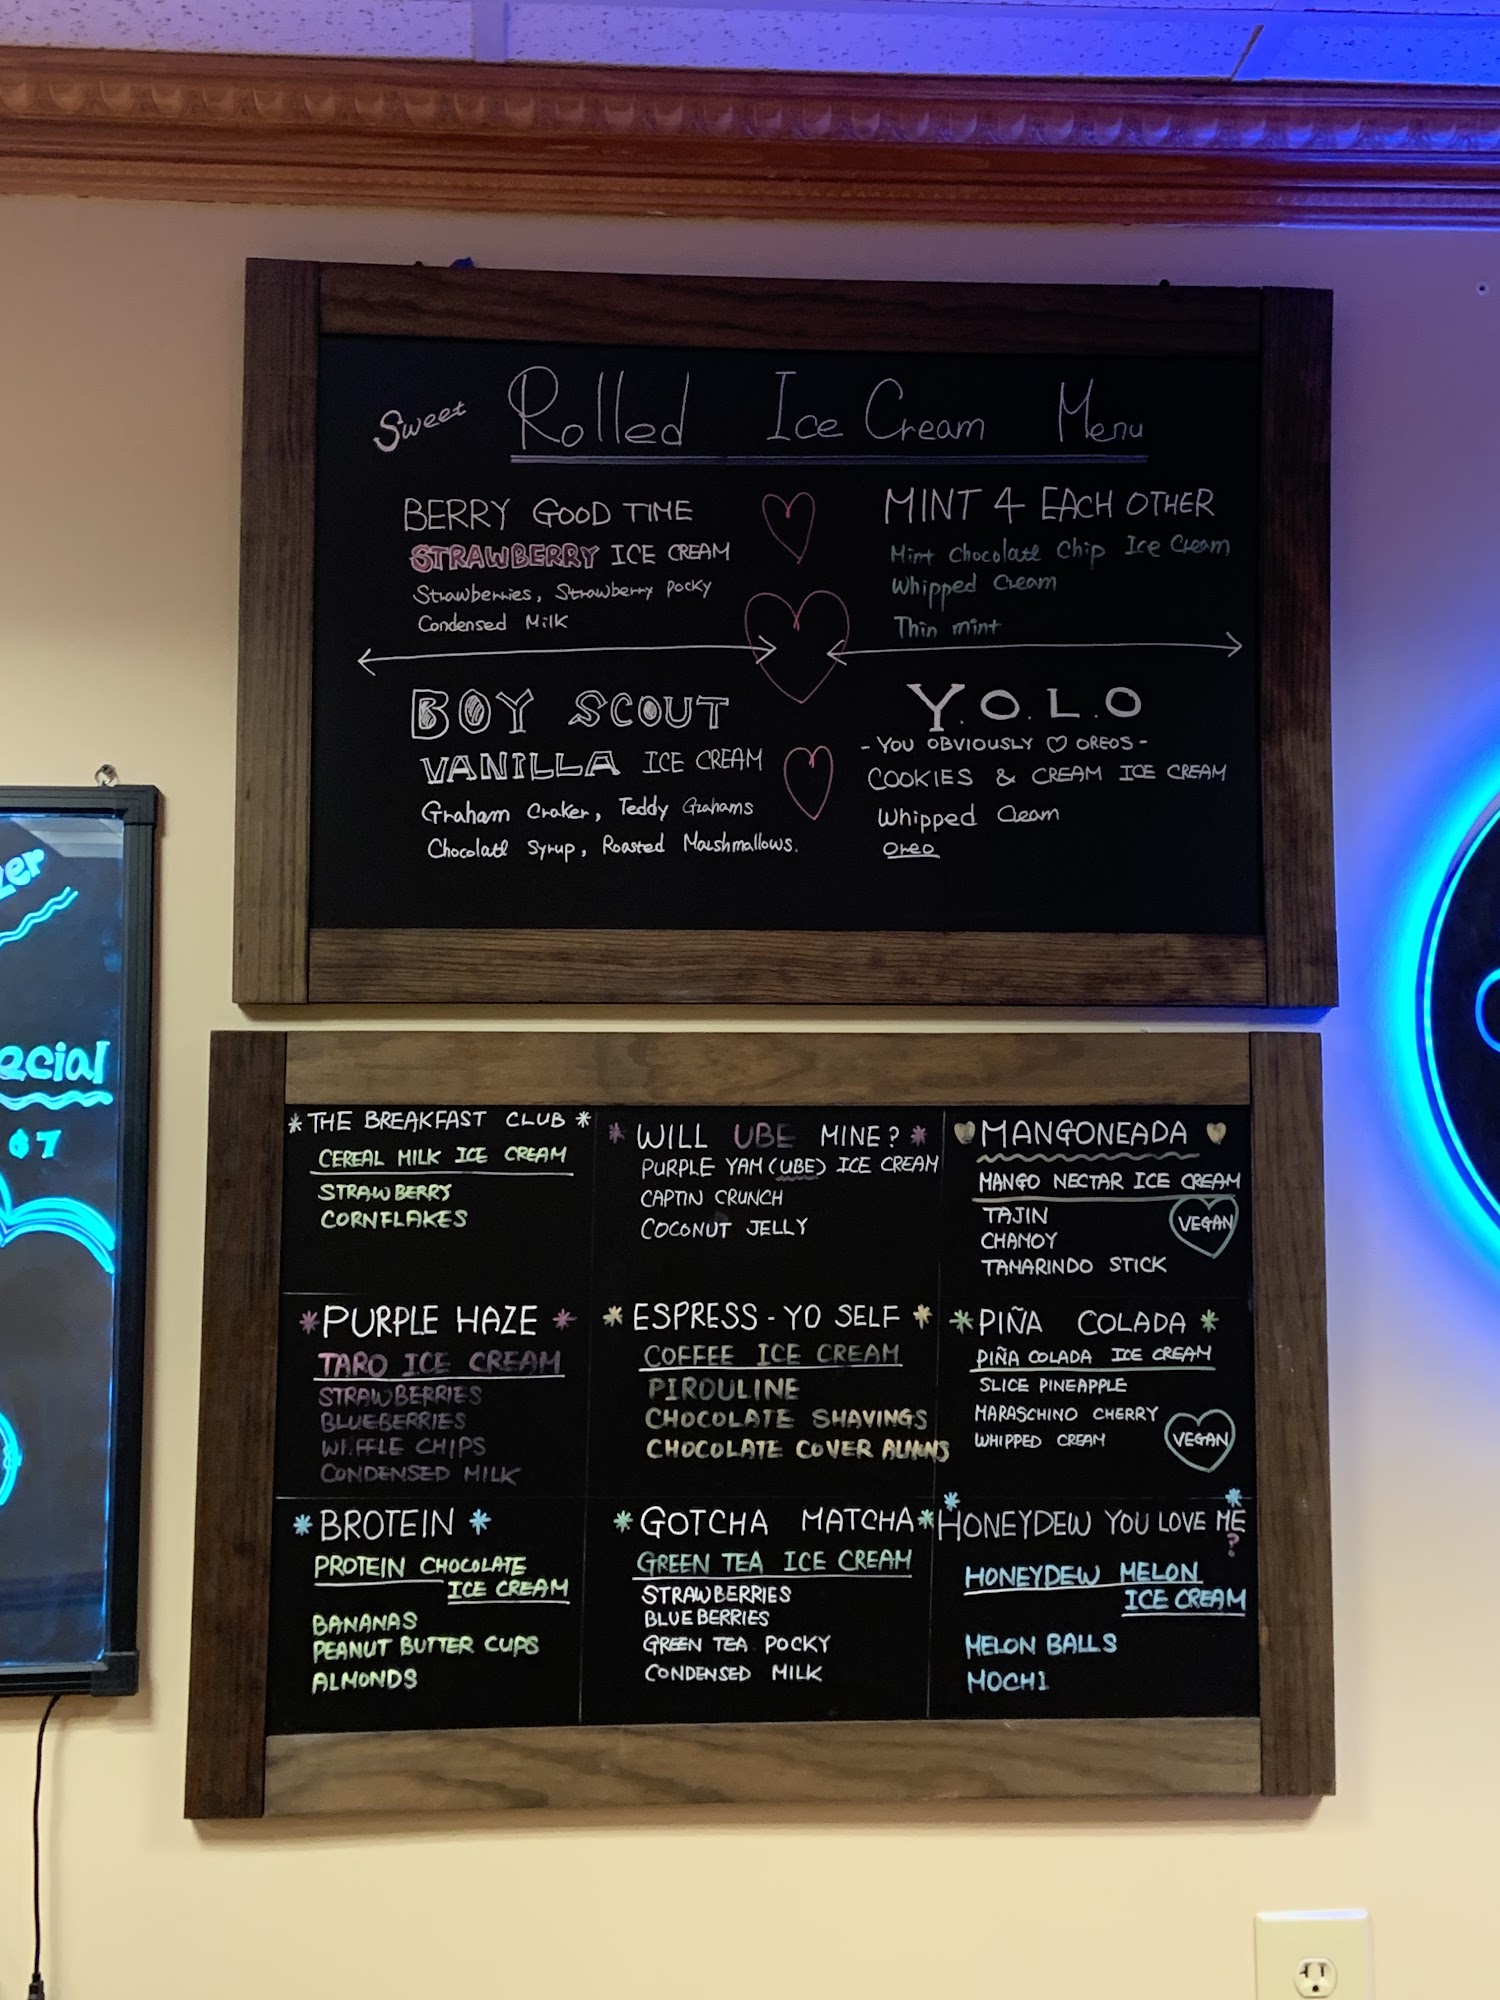 Sweet Rolled Ice Cream Menu
BERRY GOOD TIME
STRAWBERRY ICE CREAM
Strawberries, Strawberry Pocky
Condensed Milk
MINT 4 EACH OTHER
Mint Chocolate Chip Ice Cream
Whipped Cream
Thin mint
BOY SCOUT
VANILLA ICE CREAM
Graham Craker, Teddy Grahams
Chocolate Syrup, Roasted Marshmallows.
Y.O.L.O
- YOU OBVIOUSLY ♡ OREOS -
COOKIES & CREAM ICE CREAM
Whipped Cream
Oreo
* THE BREAKFAST CLUB *
CEREAL MILK ICE CREAM
STRAWBERRY
CORNFLAKES
* WILL UBE MINE? *
PURPLE YAM (UBE) ICE CREAM
CAPTIN CRUNCH
COCONUT JELLY
MANGONEADA
MANGO NECTAR ICE CREAM
TAJIN
CHAMOY
TAMARINDO STICK
VEGAN
* PURPLE HAZE *
TARO ICE CREAM
STRAWBERRIES
BLUEBERRIES
WAFFLE CHIPS
CONDENSED MILK
* ESPRESS-YO SELF *
COFFEE ICE CREAM
PIROULINE
CHOCOLATE SHAVINGS
CHOCOLATE COVER
* PIÑA COLADA *
PIÑA COLADA ICE CREAM
SLICE PINEAPPLE
MARASCHINO CHERRY
WHIPPED CREAM
VEGAN
* BROTEIN *
PROTEIN CHOCOLATE
ICE CREAM
BANANAS
PEANUT BUTTER CUPS
ALMONDS
* GOTCHA MATCHA *
GREEN TEA ICE CREAM
STRAWBERRIES
BLUEBERRIES
GREEN TEA POCKY
CONDENSED MILK
HONEYDEW YOU LOVE ME?
HONEYDEW MELON
ICE CREAM
MELON BALLS
MOCHI
$7